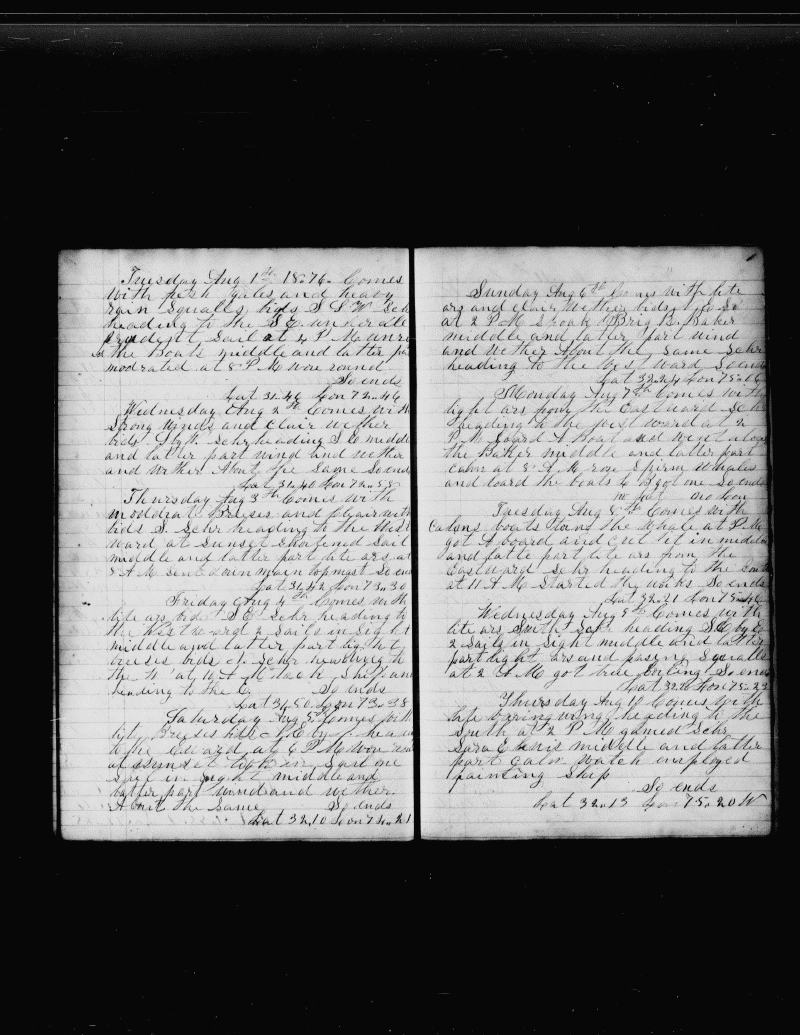 Tuesday Aug 1st 1876. Comes
with fresh gales and heavy
rain squalls bids S S W Sch
heading to the S E under
Sail at 4 P M
the Boats middle and latter part
modrated at 8 P M wore round
So ends
Lat 31..46 Lon 72..46
Wednesday Aug 2nd Comes with
strong winds and clair wether
bids Schr heading S E middle
and latter part wind and wether
and wether About the Same So ends
Lat 31..40 Lon 72..55
Thursday Aug 3th Comes with
moddrat Breises and Clair with
bids S. Schr heading to the West
ward at Sunset Shortened Sail
middle and latter part lite ars at
8 A M sent down main topmast So ends
Lat 31..42 Lon 73..30
Friday Aug 4th Comes with
lite ars bids S E Schr heading to
the Westward 2 Sails in Sight
middle and latter part light
breises bids Schr heading to
the at 10 A M tack Ship and
heading to the E. So ends
Lat 31..50 Lon 73..38
Saturday Aug 5th Comes with
lite Breises bids N E by heading
to the Eward at 6 P M wore round
at sunset took in Sail one
Sail in Sight middle and
latter part wind and wether
About the Same So ends
Lat 32,10 Lon 74..21
Sunday Aug 6th Comes with lite
ars and clair wether bids to So
at 2 P M Spoak Brig B. Baker
middle and latter part wind
and wether About the Same Schr
heading to the West ward So ends
Lat 32..24 Lon 75..06
Monday Aug 7th Comes with
light ars from the Eastward Schr
heading to the west ward at 2
P M Loard A Boat and went along
the Baker middle and latter part
calm at 8 A M rose Sperm Whales
and loard the boats L B got one So ends
no Lat no Lon
Tuesday Aug 8th Comes with
Calms boats towe the whale at P M
got A board and cut it in middle
and latte part lite ars from the
Eastward Schr heading to the South
at 11 A M Started the works So ends
Lat 32..21 Lon 75..46
Wednesday Aug 9th Comes with
lite ars South Schr heading S E by E
2 Sails in Sight middle and latter
part light ars and pasing Squalls
at 2 A M got threw Boiling So ends
Lat 32.. Lon 75..23
Thursday Aug 10 Comes with
heading to the
South at 2 P M gamed Schr
Sara E Lewis middle and latter
part calm watch employed
painting Ship
So ends
Lat 32..13 Lon 75..20 W